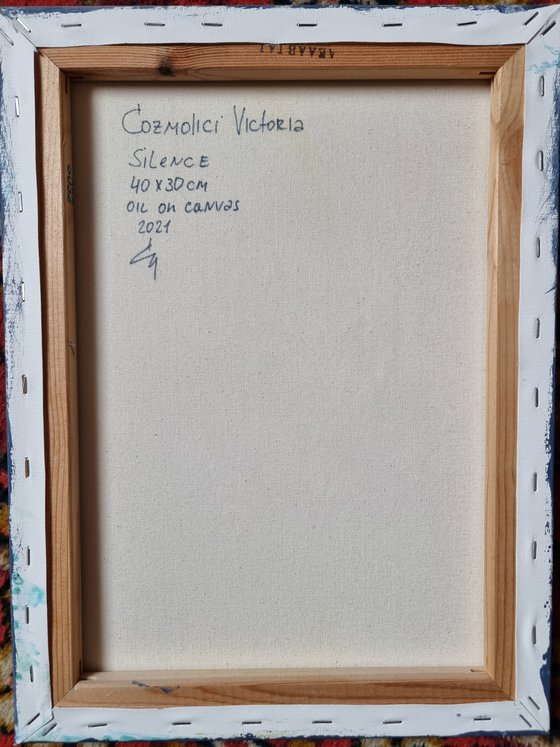 Cozmolici Victoria
Silence
40 x 30 cm
oil on canvas
2021